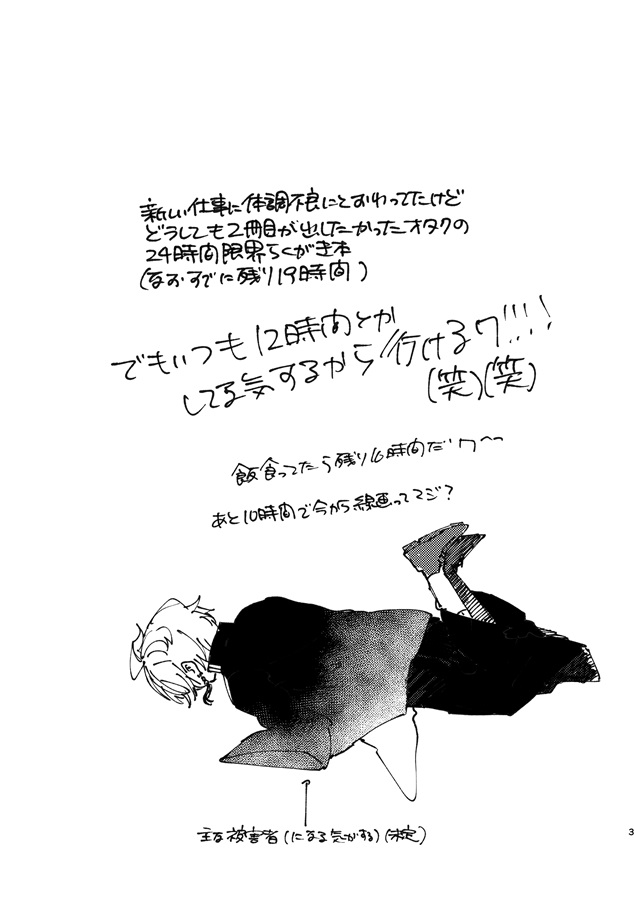 新しい仕事に体調不良にとおわってたけど
どうしても2冊目が出したかったオタクの
24時間限界らくがき本
(なおすでに残り19時間)
でもいつも12時間とか
してる気するから行けるワ!!!!
(笑)(笑)
飯食ってたら残り16時間だワ〜っ
あと10時間で今から線画ってマジ?
主な被害者(になる気がする)(未定)
3